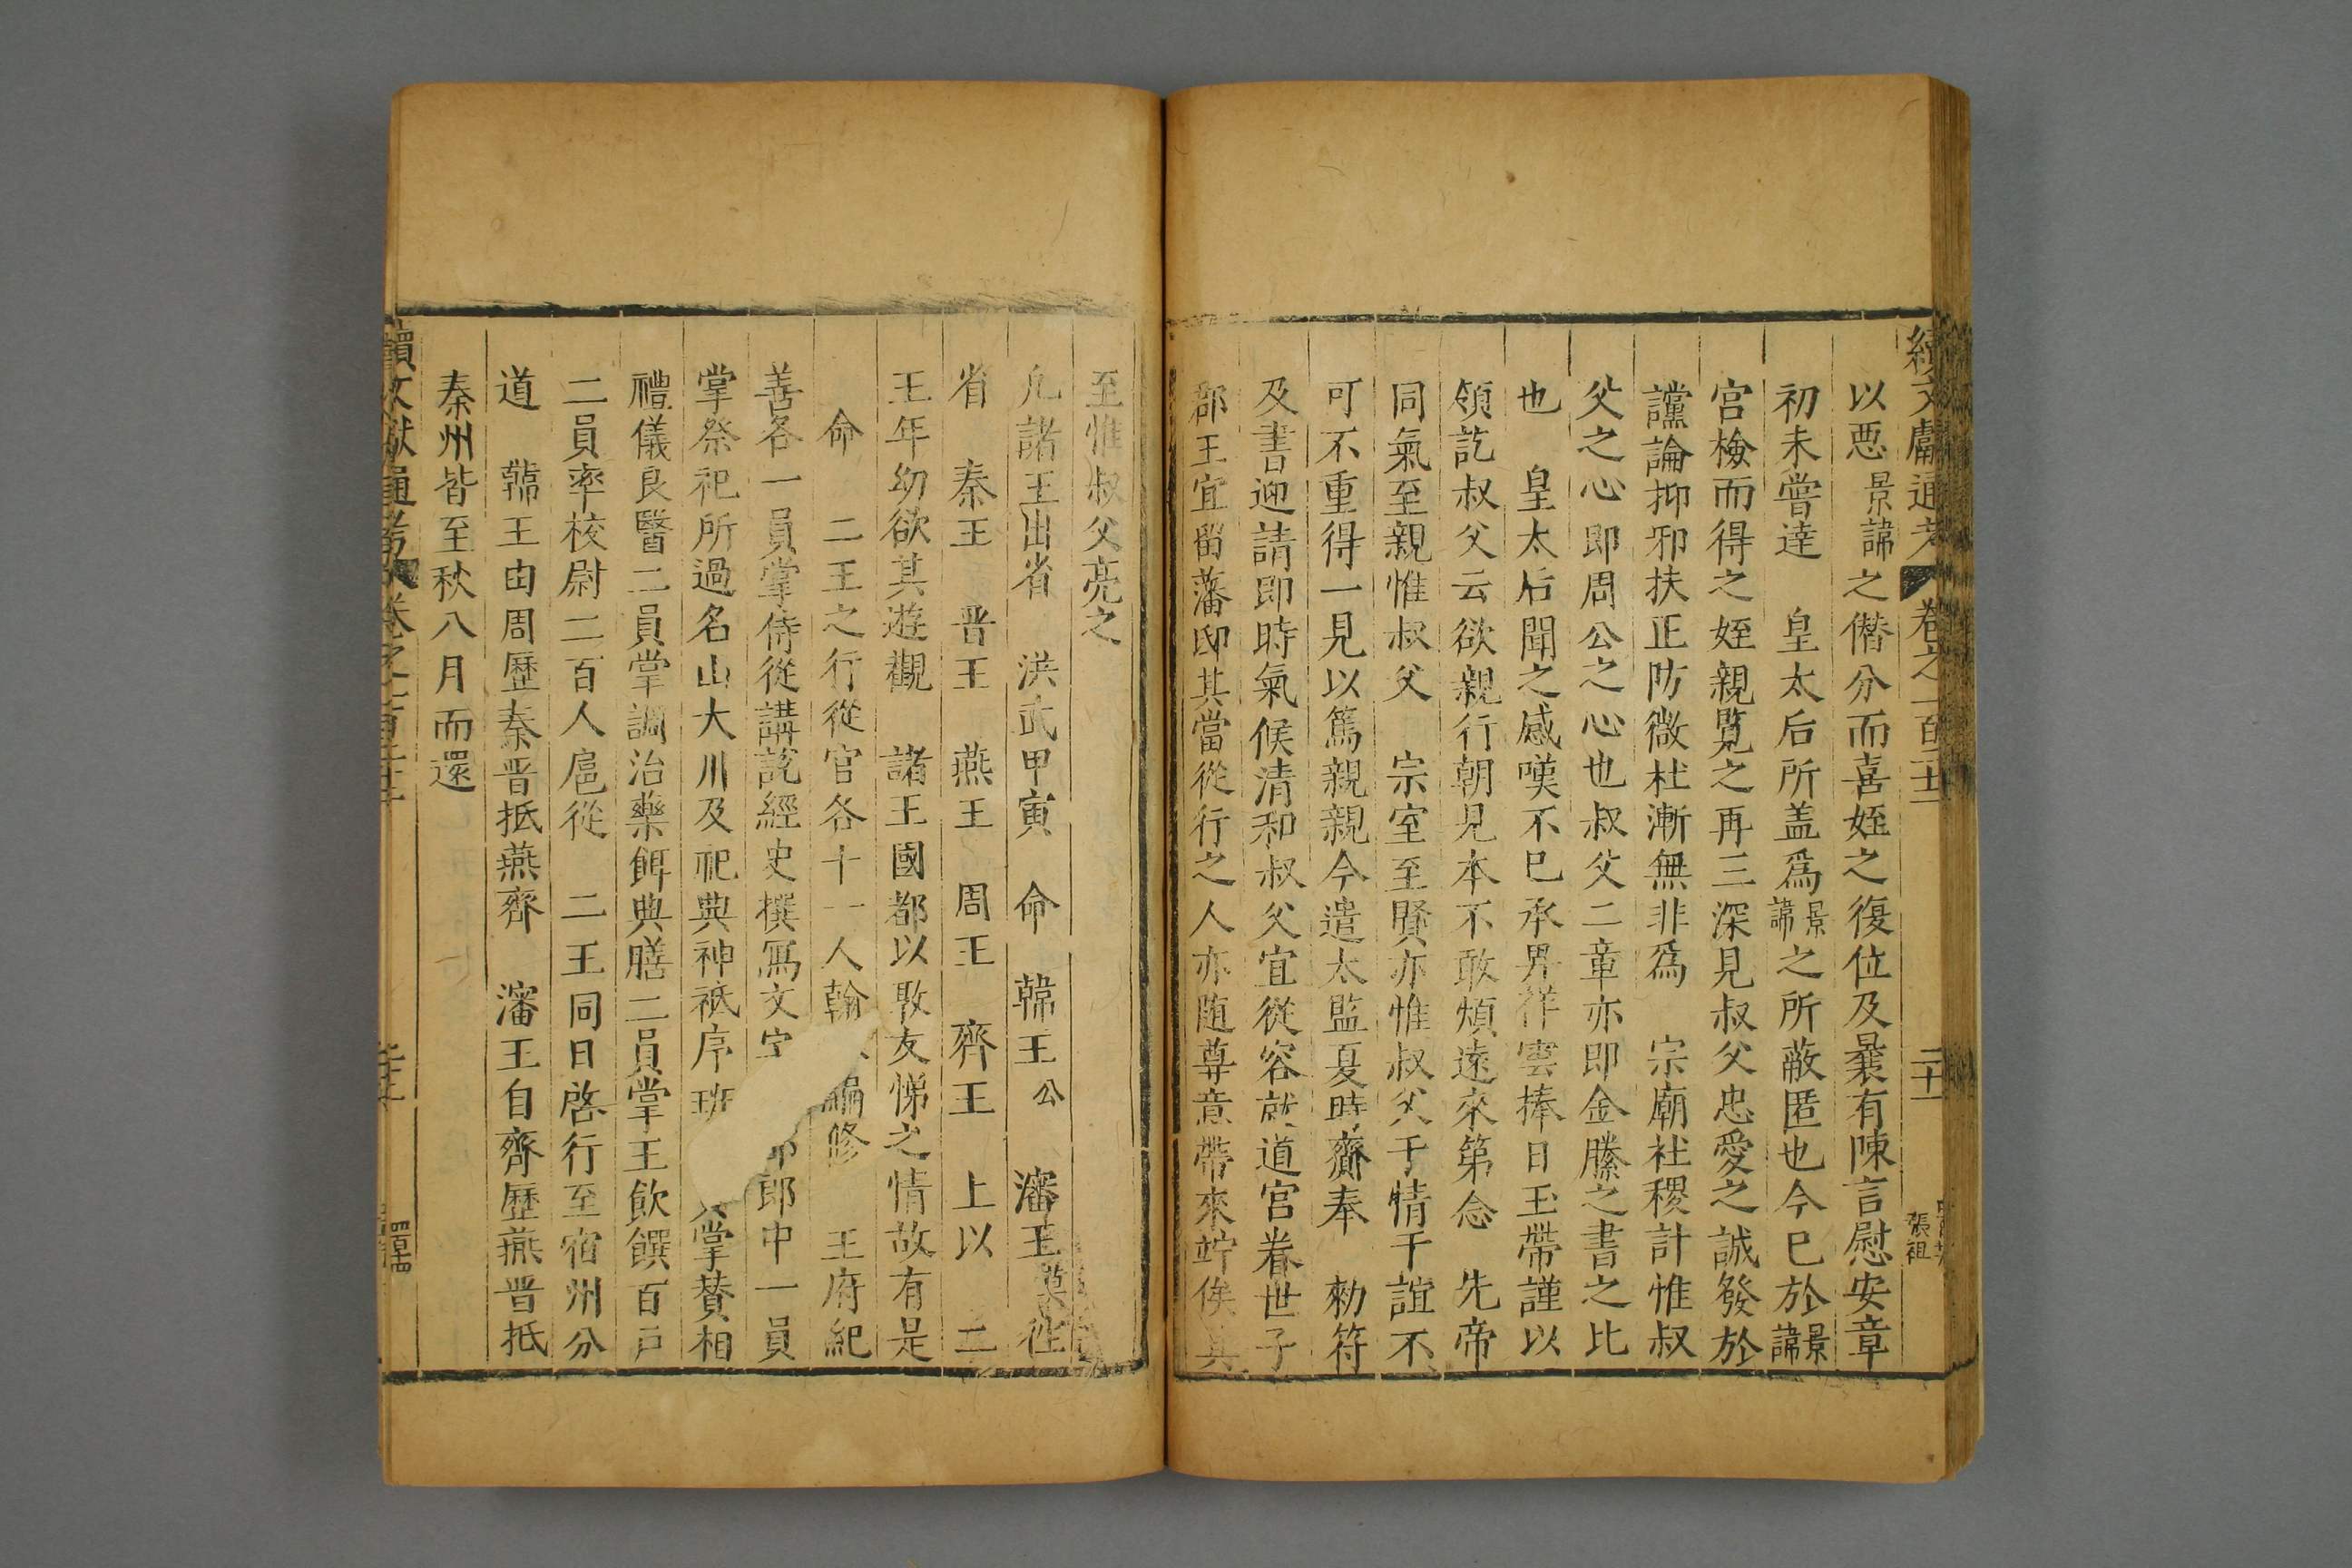 續文獻通考 卷之一百 二十一
張祖
以惡景諱之僭分而喜姪之復位及曩有陳言慰安章
初未嘗達 皇太后所盖爲景諱之所蔽匿也今巳於景諱
宫檢而得之姪親覧之再三深見叔父忠愛之誠發於
讜論抑邪扶正防微杜漸無非爲 宗廟社稷計惟叔
父之心即周公之心也叔父二章亦即金縢之書之比
也 皇太后聞之感嘆不巳承畀祥雲捧日玉帶謹以
領訖叔父云欲親行朝見本不敢煩遠來第念 先帝
同氣至親惟叔父 宗室至賢亦惟叔父于情于誼不
可不重得一見以篤親親今遣太監夏時齎奉 勑符
及書迎請即時氣候清和叔父宜從容就道宫眷世子
郡王宜留藩邸其當從行之人亦随尊意帶來竚俟其
至惟叔父亮之
凡諸王出省 洪武甲寅 命 韓王公 瀋王模徃
省 秦王 晋王 燕王 周王 齊王 上以 二
王年幼欲其遊觀 諸王國都以敦友悌之情故有是
命 二王之行從官各十一人翰 編修 王府紀
善各一員掌侍從講説經史撰寫文字 郎中一員
掌祭祀所過名山大川及祀典神祗序班 掌賛相
禮儀良醫二員掌調治藥餌典膳二員掌王飲饌百戸
二員率校尉二百人扈從 二王同日啓行至宿州分
道 韓王由周歷秦晋抵燕齊 瀋王自齊歷燕晋抵
秦州皆至秋八月而還
續文獻通考 卷之一百